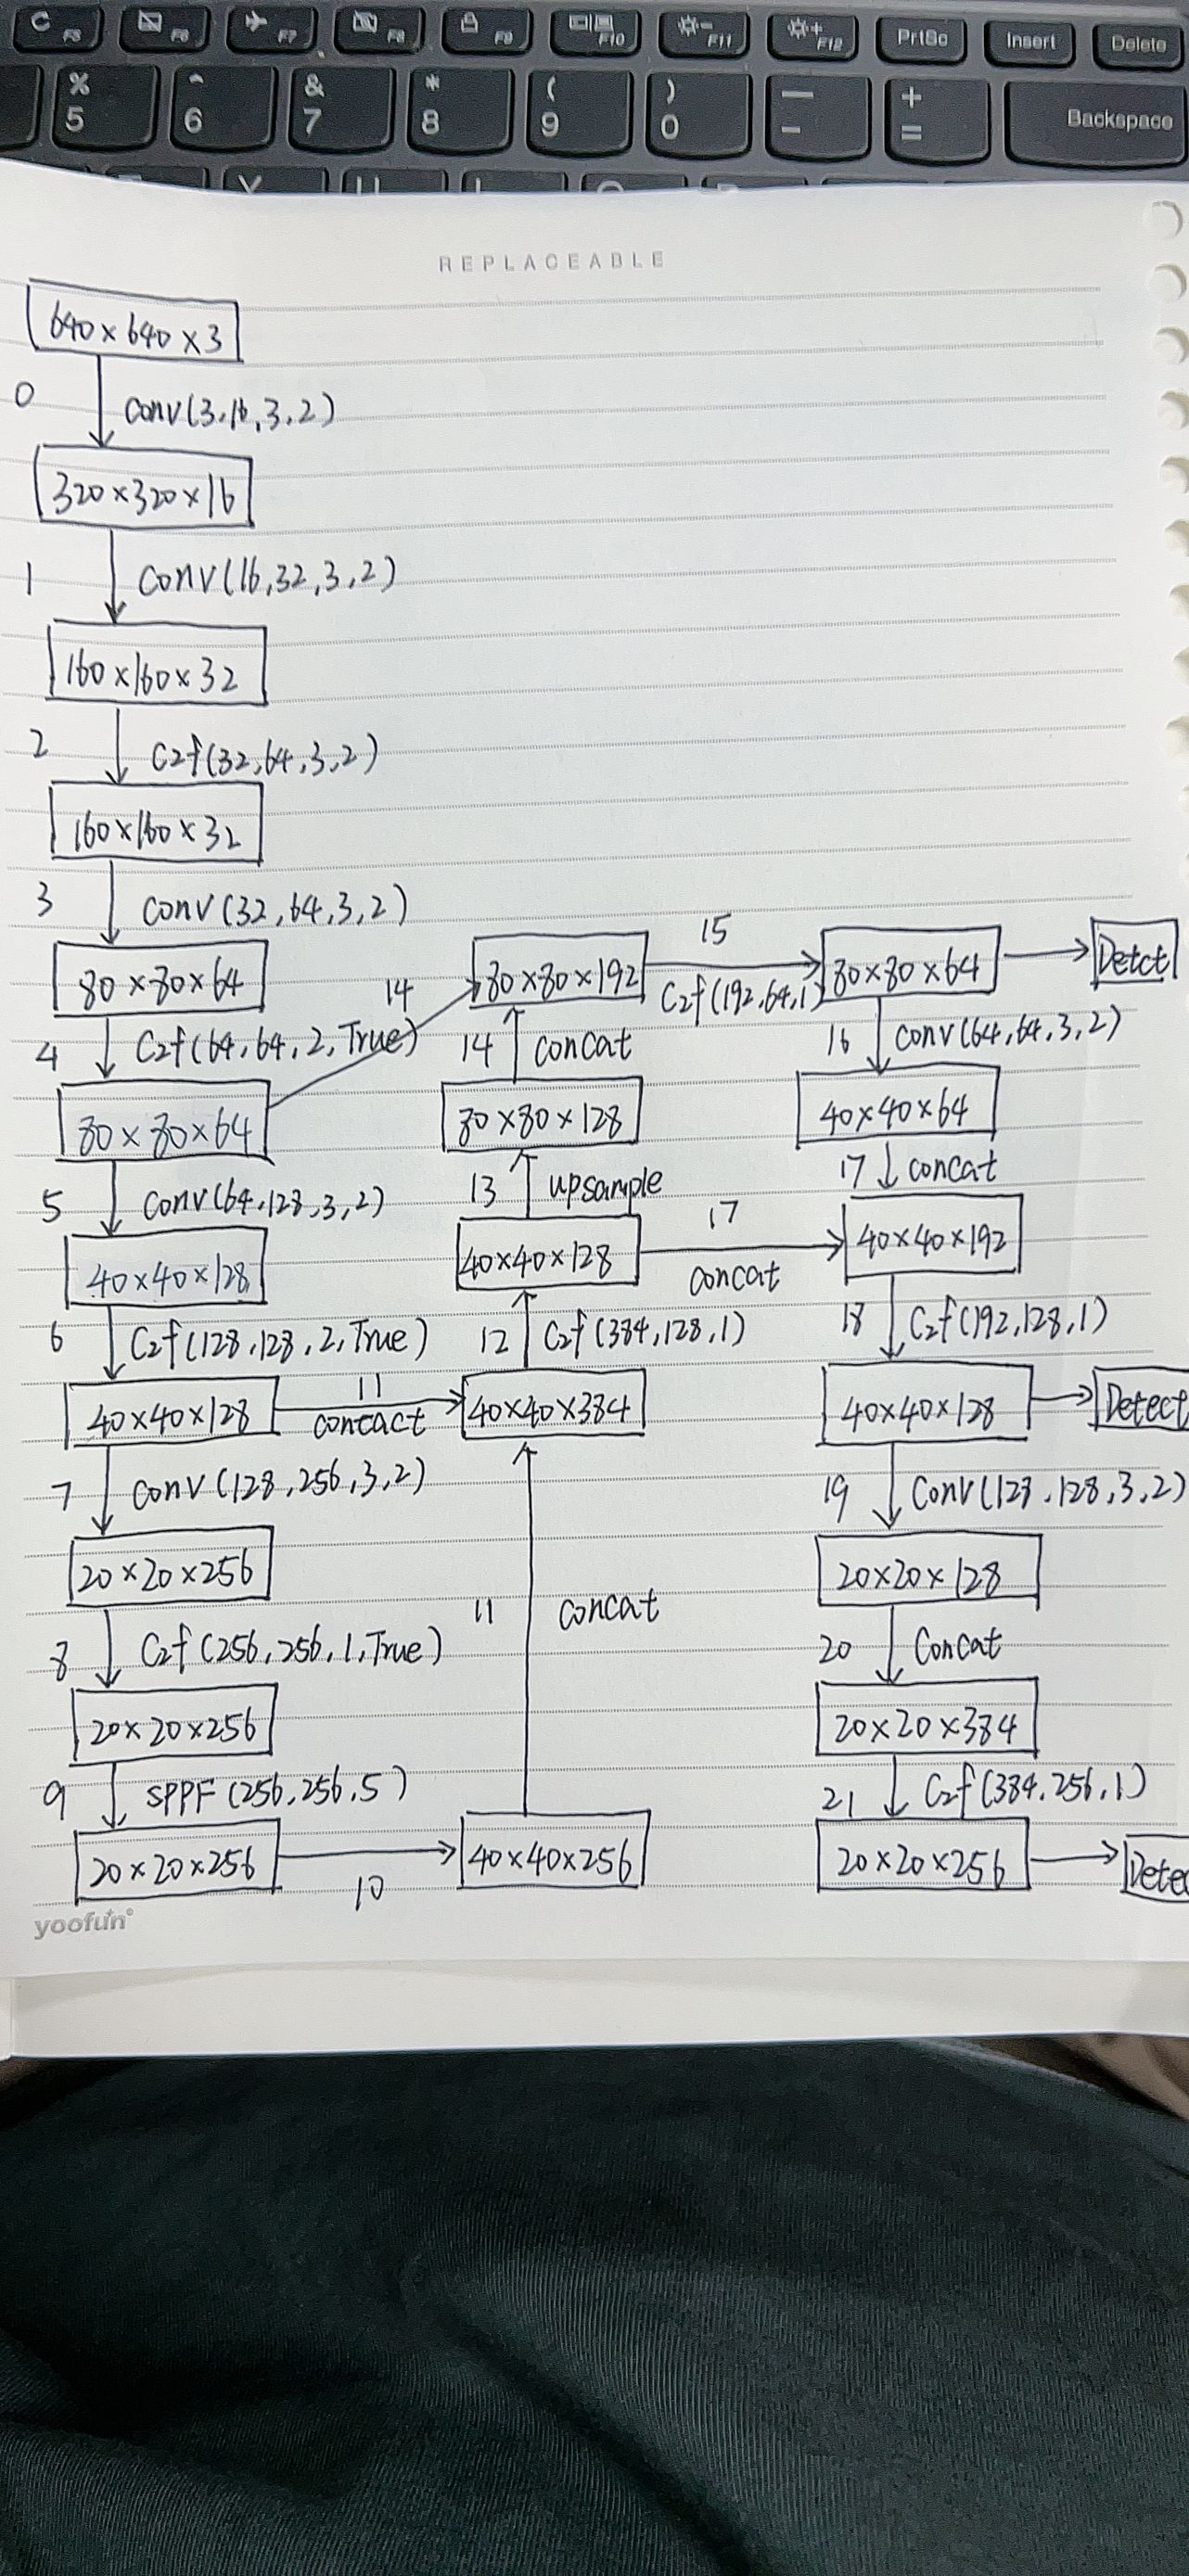 C F5 F6 F7 F8 F9 F10 F11 F12 PrtSc Insert Delete
% 5 ^ 6 & 7 * 8 ( 9 ) 0 — - + = Backspace
REPLACEABLE
640×640×3
0 Conv(3,16,3,2)
320×320×16
1 Conv(16,32,3,2)
160×160×32
2 C2f(32,64,3,2)
160×160×32
3 Conv(32,64,3,2)
80×80×64
4 C2f(64,64,2,True)
80×80×64
5 Conv(64,128,3,2)
40×40×128
6 C2f(128,128,2,True)
40×40×128
7 Conv(128,256,3,2)
20×20×256
8 C2f(256,256,1,True)
20×20×256
9 SPPF(256,256,5)
20×20×256
10
40×40×256
11 concat
11
contact
40×40×384
12 C2f(384,128,1)
40×40×128
13 upsample
80×80×128
14 concat
14
80×80×192
15
C2f(192,64,1)
80×80×64
Detct
16 Conv(64,64,3,2)
40×40×64
17 concat
17
concat
40×40×192
18 C2f(192,128,1)
40×40×128
Detect
19 Conv(128,128,3,2)
20×20×128
20 Concat
20×20×384
21 C2f(384,256,1)
20×20×256
Detec
yoofun